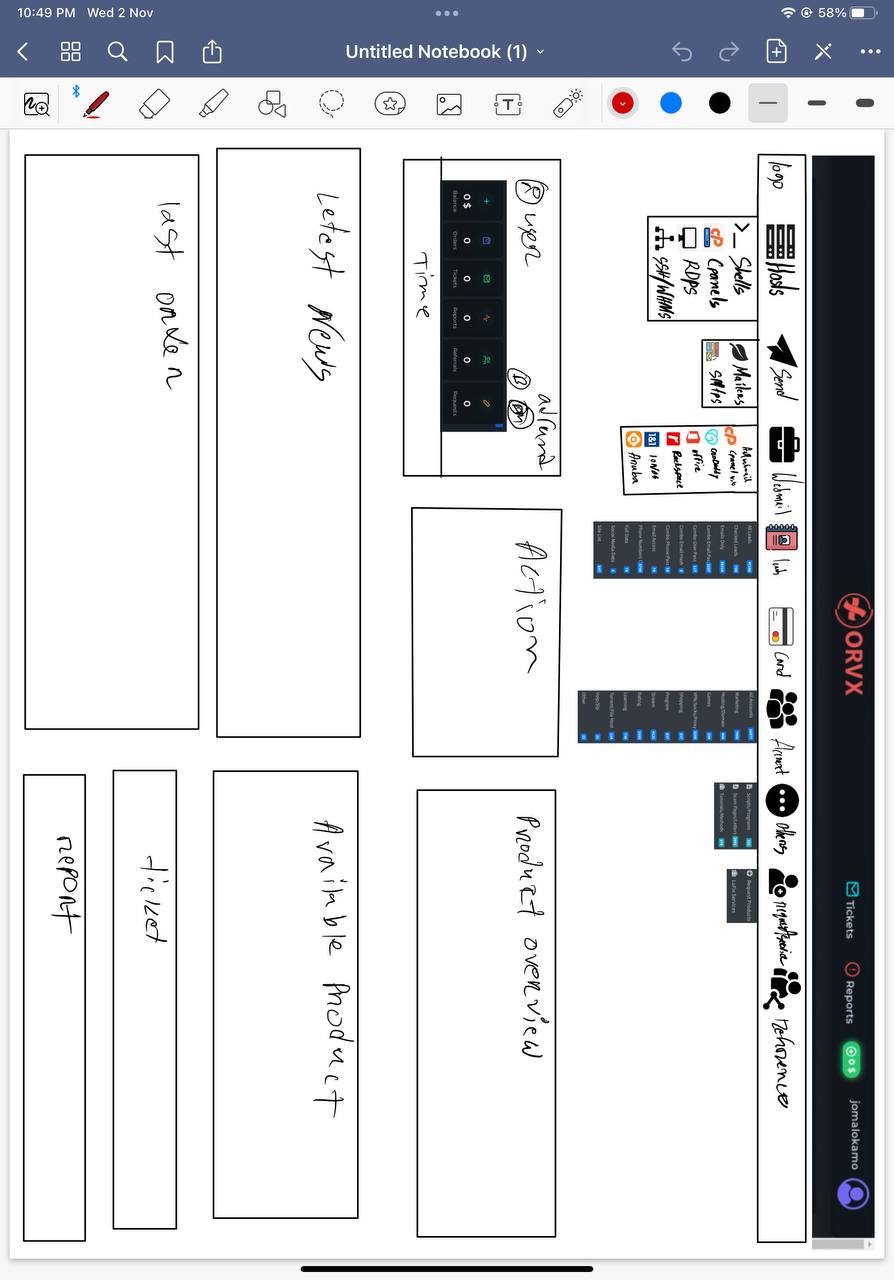 ORVX
Tickets
Reports
0 $
jomalokamo
logo
Hosts
Send
Webmail
Card
Others
Reference
Shells
Cpanels
RDPS
SSH/WHMS
Mailers
SMTPS
GoDaddy
office
Rackspace
1&1 IONOS
Aruba
All Leads
Checked Leads
Emails Only
Combo Email:Pas
Combo User:Pass
Combo Email:Hash
Combo Phone:Pass
Email Access
Phone Numbers
Full Data
Social Media Data
Site List
All Accounts
Marketing
Hosting/Domain
Games
VPN/Socks/Proxy
Shopping
Program
Stream
Dating
Learning
Torrent/File Host
Voip/Sip
Other
Scripts/Programs
Scam Pages/Letters
Tutorials/Methods
Request Products
LuFix Services
user
0 $ 0 0 0 0 0
Balance Orders Tickets Reports Referrals Requests
Time
Action
Product overview
Letest News
Available Product
last order
ticket
report
Untitled Notebook (1)
58%
10:49 PM Wed 2 Nov